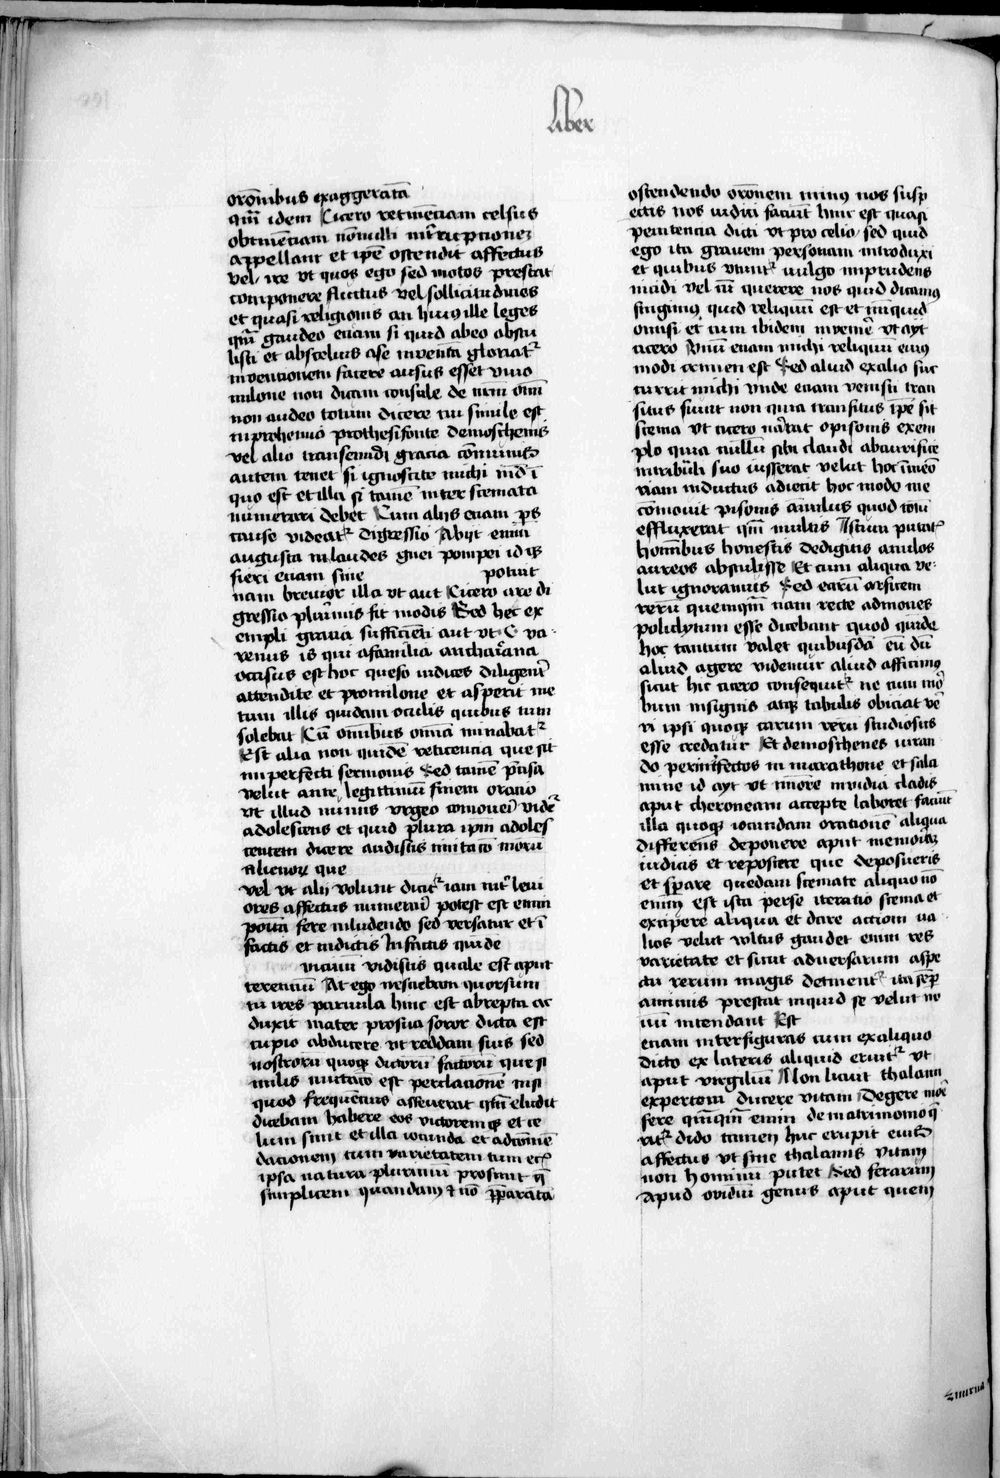 Liber
orōnibus exaggerata
qm̄ idem Cicero retinētiam celsus
obtinētiam nōnulli int̄ruptionez
appellant et ipē ostendit affectus
vel ire vt quos ego sed motos prestat
componere fluctus vel sollicitudinis
et quasi religionis an huius ille leges
qm̄ gaudeo etiam si quid abeo abstu
listi et absceluis ase inventa gloriat᷑
inventionem facere ausus esset viuo
milone non dicam consule de nr̄m om̄
non audeo totum dicere cui simile est
inprohemio prothesifonte demosthenis
vel alio transeundi gracia cōmunis
autem tenet si ignoscite michi in d̄ ī
quo est et illa si tamē inter scemata
numerari debet Cum aliis etiam ps̄
cause videat᷑ Digressio Abijt enim
augusta in laudes gnei pompei id qꝫ
fieri etiam sine potuit
nam breuior illa vt aut Cicero are di
gressio plurimis fit modis Sed hec ex
empli gratia sufficiēti aut vt C va
renus is qui afamilia ancharāna
occisus est hoc queso iudices diligent᷑
attendite et promilone et asperit me
tum illis quidam oculis quibus tum
solebat Cū omībus omīa minabat᷑
Est alia non quidē reticencia que sit
imperfecti sermonis Sed tamē p̄cisa
velut ante legittimū finem oracio
vt illud nimis vrgeo comoueri vidēt᷑
adolescens et quid plura ipm̄ adoles
centem dicere audistis imitacō morū
alienoꝝ que
vel vt alij volunt dicit᷑ iam int᷑ leui
ores affectus numerari potest est enim
posita fere inludendo sed versatur et ī
factis et indictis In factis quide
vicinū vidistis quale est aput
terentiū At ego nesciebam quorsum
tu ires paruula hinc est abrepta ac
duxit mater prosua soror dicta est
cupio abducere vt reddam suis sed
nostrorū quoqꝫ dictorū factorū que si
milis imitacō est perrelacionē nisi
quod frequencius asseuerat qm̄ eludit
dicebam habere eos victorem qꝫ et ce
lium sunt et illa iocunda et adcōmē
dacionem cum varietatem tum ec̄
ipsa natura plurimū prosunt q̄
simplicem quandam et nō p̄parata
ostendendo orōnem minus nos susp
ectis nos iudici faciūt hinc est quasi
penitencia dicti vt pro celio sed quid
ego ita grauem personam introduxi
et quibus vtimt᷑ uulgo imprudens
incidi vel cū querere nos quid dicamus
fingimus quid reliquū est et nūquid
omisi et cum ibidem inveniē vt ayt
cicero Unū etiam michi reliquū eius
modi crimen est Sed aliud exalio suc
currit michi vnde etiam venisti tran
situs fiunt non quia transitus ipē sit
scema vt cicero nārat opisonis exem
plo quia nullū sibi claudi abaurifice
intribūli suo iusserat velut hoc ī meō
riam inductus adiecit hoc modo me
cōmouit pisonis anulus quod totū
effluxerat qm̄ multis Istum putat᷑
hominibus honestis Dedigitis anulos
aureos abstulisse Et cum aliqua ve
lut ignoramus Sed earū arficem
rerū quemqm̄ nam recte admones
policlytum esse dicebant quod quide
hoc tantum valet quibusdā eū dū
aliud agere videmur aliud afficimus
sicut hic cicero consequit᷑ ne cum mor
bum insignis atqꝫ tabulis obiciat ve
ri ipsi quoqꝫ earum rerū studiosus
esse credatur Et demosthenes iuran
do perinterfectos in marathone et sala
mine id ayt vt minore invidia cladis
aput cheroneam accepte laboret faciūt
illa quoqꝫ iocundam orationē aliqua
Differens deponere aput memoriā
iudicis et reposcere que deposueris
et sp̄are quedam scemate aliquo nō
enim est ista perse iteratio scema et
excipere aliqua et dare actioni ua
lios velut vltus gaudet enim res
varietate et sicut adversarum aspe
ctu rerum magis detinent᷑ ita sēp
animis prestat inquid se velut no
uū intendant Est
etiam interfiguras cum exaliquo
dicto ex lateris aliquid eruit᷑ vt
aput virgiliū Non licuit thalami
expertem ducere vitam Degere more
fere qm̄qm̄ enim de matrimonio q̄
rit᷑ dido tamen huc erupit eius
affectus vt sine thalamis vitam
non hominū putet Sed ferarum
apud ovidiū genus aput quem